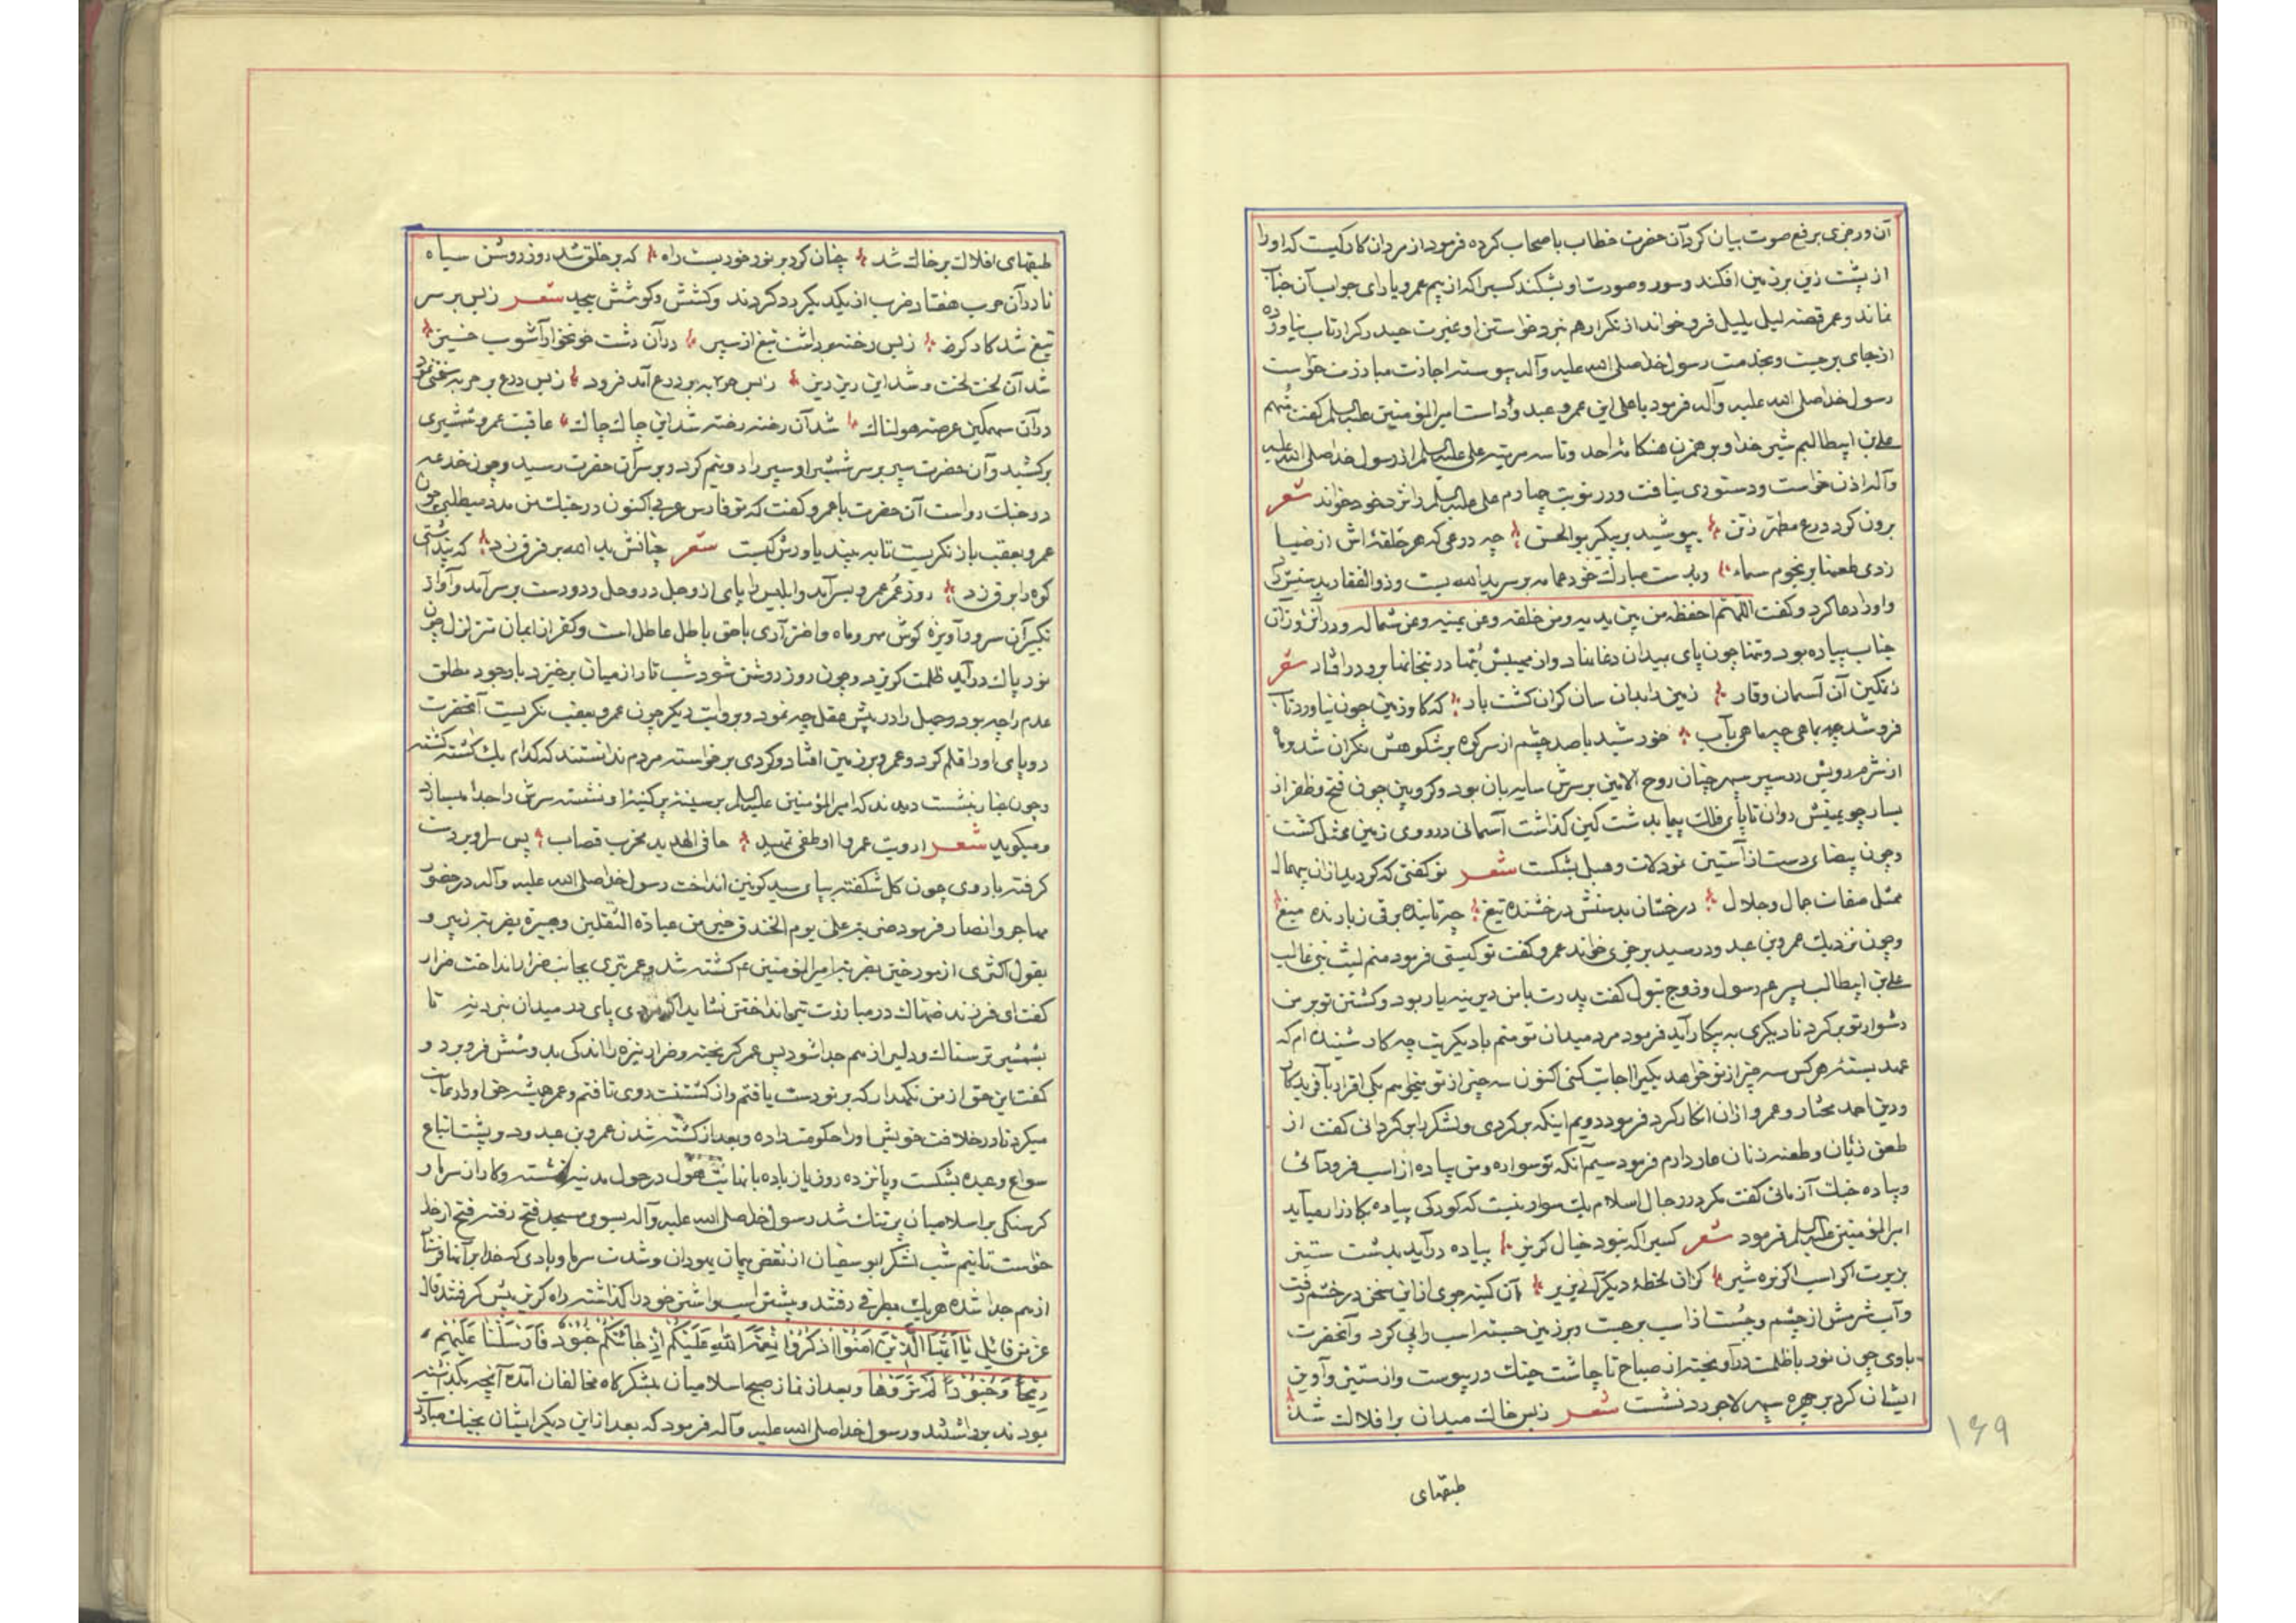 آن ورجزی برفع صوت بیان کرد آن حضرت خطاب باصحاب کرده فرمود از مردان کار کیست که او را
از پشت زین بر زمین افکند و سورت و صورت او بشکند کسیرا که از بیم عمرو یارای جواب آن جناب
نماند و عمر قصه لیل یلیل فرو خواند از تکرار هم نبرد خواستن او غیرت حیدر کرار تاب نیاورده
از جای برجست و بخدمت رسول خدا صلی الله علیه وآله پیوسته اجازت مبارزت خواست
رسول خدا صلی الله علیه وآله فرمود یا علی این عمرو عبد ود است امیرالمؤمنین علیه السلم گفت منهم
علی بن ابیطالبم شیر خدا و بر همزن هنگامه احد و تا سه مرتبه علی علیه السلم از رسول خدا صلی الله علیه
وآله اذن خواست و دستوری نیافت و در نوبت چهارم علی علیه السلم را نزد خود خواند شعر
برون کرد درع مطهر ز تن بپوشید بر پیکر بوالحسن چه درعی که هر حلقه‌اش از ضیا
زدی طعنها بر نجوم سماء و بدست مبارک خود عمامه بر سر یدالله بست و ذوالفقار بدستش
و او را دعا کرد و گفت اللهم احفظه من بین یدیه و من خلفه و عن یمینه و عن شماله و در آنروز آن
جناب پیاده بود و تنها چون پای بمیدان دغا نهاد و از هیبتش بتها در بتخانها برو در افتاد شعر
ز تمکین آن آسمان وقار زمین را بدان سان گران گشت بار که گاو زمین چون نیاورد تاب
فرو شد چه ماهی چه ماهی بآب خورشید با صد چشم از سر کوه بر شکوهش نگران شد و ماه
از شرم رویش در سپر سپهر چنان روح الامین بر سرش سایه‌بان بود و کروبین چون فتح و ظفر از
یسار چو یمینش دوان تا پای فلک پیما بدشت کین گذاشت آسمانی در روی زمین ممثل گشت
و چون بیضای دست از آستین نمود لات و هبل بشکست شعر تو گفتی که گردید از آن بیهمال
ممثل صفات جمال و جلال درخشان بدستش درخشنده تیغ چه تابنده برقی ز بارنده میغ
و چون نزدیک عمرو بن عبد ود رسید برجزی خواند عمرو گفت تو کیستی فرمود منم لیث بنی غالب
علی بن ابیطالب پسر عم رسول و زوج بتول گفت پدرت با من دیرینه یار بود و کشتن تو بر من
دشوار تو برگرد تا دیگری به پیکار آید فرمود مرد میدان تو منم با دیگریت چه کار شنیده‌ام که
عهد بسته هر کس سه چیز از تو خواهد یکی را اجابت کنی اکنون سه چیز از تو میخواهم یکی اقرار بآفریدگار
و دین احمد مختار و عمرو از آن انکار کرد فرمود دویم اینکه برگردی و لشکر را برگردانی گفت از
طعن زنان و طعنه زنان عار دارم فرمود سیم آنکه تو سواره و من پیاده از اسب فرود آئی
و پیاده جنگ آزمائی گفت مگر در رجال اسلام یک سوار نیست که کودکی پیاده بکارزار میآید
امیرالمؤمنین علیه السلم فرمود شعر کسیرا که نبود خیال گریز پیاده در آید بدشت ستیز
بزیرت اگر اسب اگر نره شیر کز آن لحظهٔ دیگر آئی بزیر آن کینه جوی از این سخن در خشم رفت
و آب شرمش از چشم و چست از اسب برجست و بر زمین جسته اسب را پی کرد و آنحضرت
با وی چون نور با ظلمت در آویخته از صباح تا چاشت جنگ در پیوست و از ستیز و آویز
ایشان گرد بر چهره سپهر لاجورد نشست شعر ز بس خاک میدان بر افلاک شد
طبقهای
۱۶۹
طبقهای افلاک بر خاک شد چنان گرد بر نور خور بست راه که بر خلق شد روز روشن سیاه
تا در آن حرب هفتاد ضرب از یکدیگر رد کردند و کشش و کوشش بیحد شعر ز بس بر سر
تیغ شد کارگر ز بس رخنه برداشت تیغ از سپر در آن دشت خونخوار آشوب خیز
شد آن لخت لخت و شد این ریز ریز ز بس حربه بر درع آمد فرود ز بس درع بر حربه سختی نمود
در آن سهمگین عرصه هولناک شد آن رخنه رخنه شد این چاک چاک عاقبت عمرو شمشیری
برکشید و آن حضرت سپر بر سر شمشیر او سپر را دو نیم کرد و بر سر آن حضرت رسید و چون خدعه
در جنگ رواست آن حضرت با عمرو گفت که تو فارس عربی اکنون در جنگ من مدد میطلبی چون
عمرو بعقب باز نگریست تا به بیند یاورش کیست شعر چنانش یدالله بر فرق زد که پنداشتی
کوه را برق زد روز عمر عمرو بسر آمد و ابلیس را پای از وحل در وحل و دو دست بر سر آمد و آواز
تکبیر آن سرور آویزه گوش مهر و ماه و اختر آری با حق باطل عاطل است و کفر از ایمان متزلزل چون
نور پاک در آید ظلمت گریزد و چون روز روشن شود شب تار از میان برخیزد با وجود مطلق
عدم را چه بود و جهل را در پیش عقل چه نمود و بروایت دیگر چون عمرو بعقب نگریست آنحضرت
دو پای او را قلم کرد و عمرو بر زمین افتاد و گردی برخواسته مردم ندانستند که کدام یک کشته گشته
و چون غبار نشست دیدند که امیرالمؤمنین علیه السلم بر سینه پر کینه‌اش نشسته سرش را جدا میسازد
و میگوید شعر اردیت عمروا اذ طغی بمهند صافی الحدید مجرب قصاب پس سر او بر دست
گرفته با روی چون گل شکفته بپای سید کونین انداخت رسول خدا صلی الله علیه وآله در حضور
مهاجر و انصار فرمود ضربة علی یوم الخندق خیر من عبادة الثقلین و هبیره بضربت زبیر و
بقول اکثری از مورخین بضربت امیرالمؤمنین ع کشته شد و عمر تیری بجانب ضرار انداخت ضرار
گفت ای فرزند ضهاک در مبارزت تیر انداختن نشاید اگر مردی پای در میدان نبرد نه تا
بشمشیر ترسناک و دلیر از هم جدا شود پس عمر گریخته و ضرار نیزه را اندکی بدوشش فرو برد و
گفت این حق از من نگهدار که بر تو دست یافتم و از کشتنت روی تافتم و عمر همیشه حق او را رعایت
میکرد تا در خلافت خویش او را حکومت داده و بعد از کشته شدن عمرو بن عبد ود و پشت اتباع
سواع و عبده بشکست و پانزده روز یا زیاده با نهایت هول در حول مدینه نشسته و کار از سرما و
گرسنگی بر اسلامیان پر تنگ شد رسول خدا صلی الله علیه وآله بسوی مسجد فتح رفته فتح از خدا
خواست تا نیم شب لشکر ابو سفیان از نقض پیمان یهودان و شدت سرما و بادی که خدا بر آنها فرستاد
از هم جدا شده هر یک بطرفی رفتند و بیشتر اسب و اشتر خود را گذاشته راه گریز پیش گرفتند قال
عز من قائل یا ایها الذین آمنوا اذکروا نعمة الله علیکم اذ جائتکم جنود فارسلنا علیهم
ریحا و جنودا لم تروها و بعد از نماز صبح اسلامیان بلشکرگاه مخالفان آمده آنچه بگذاشته
بودند برداشتند و رسول خدا صلی الله علیه وآله فرمود که بعد از این دیگر ایشان بجنگ مبادرت